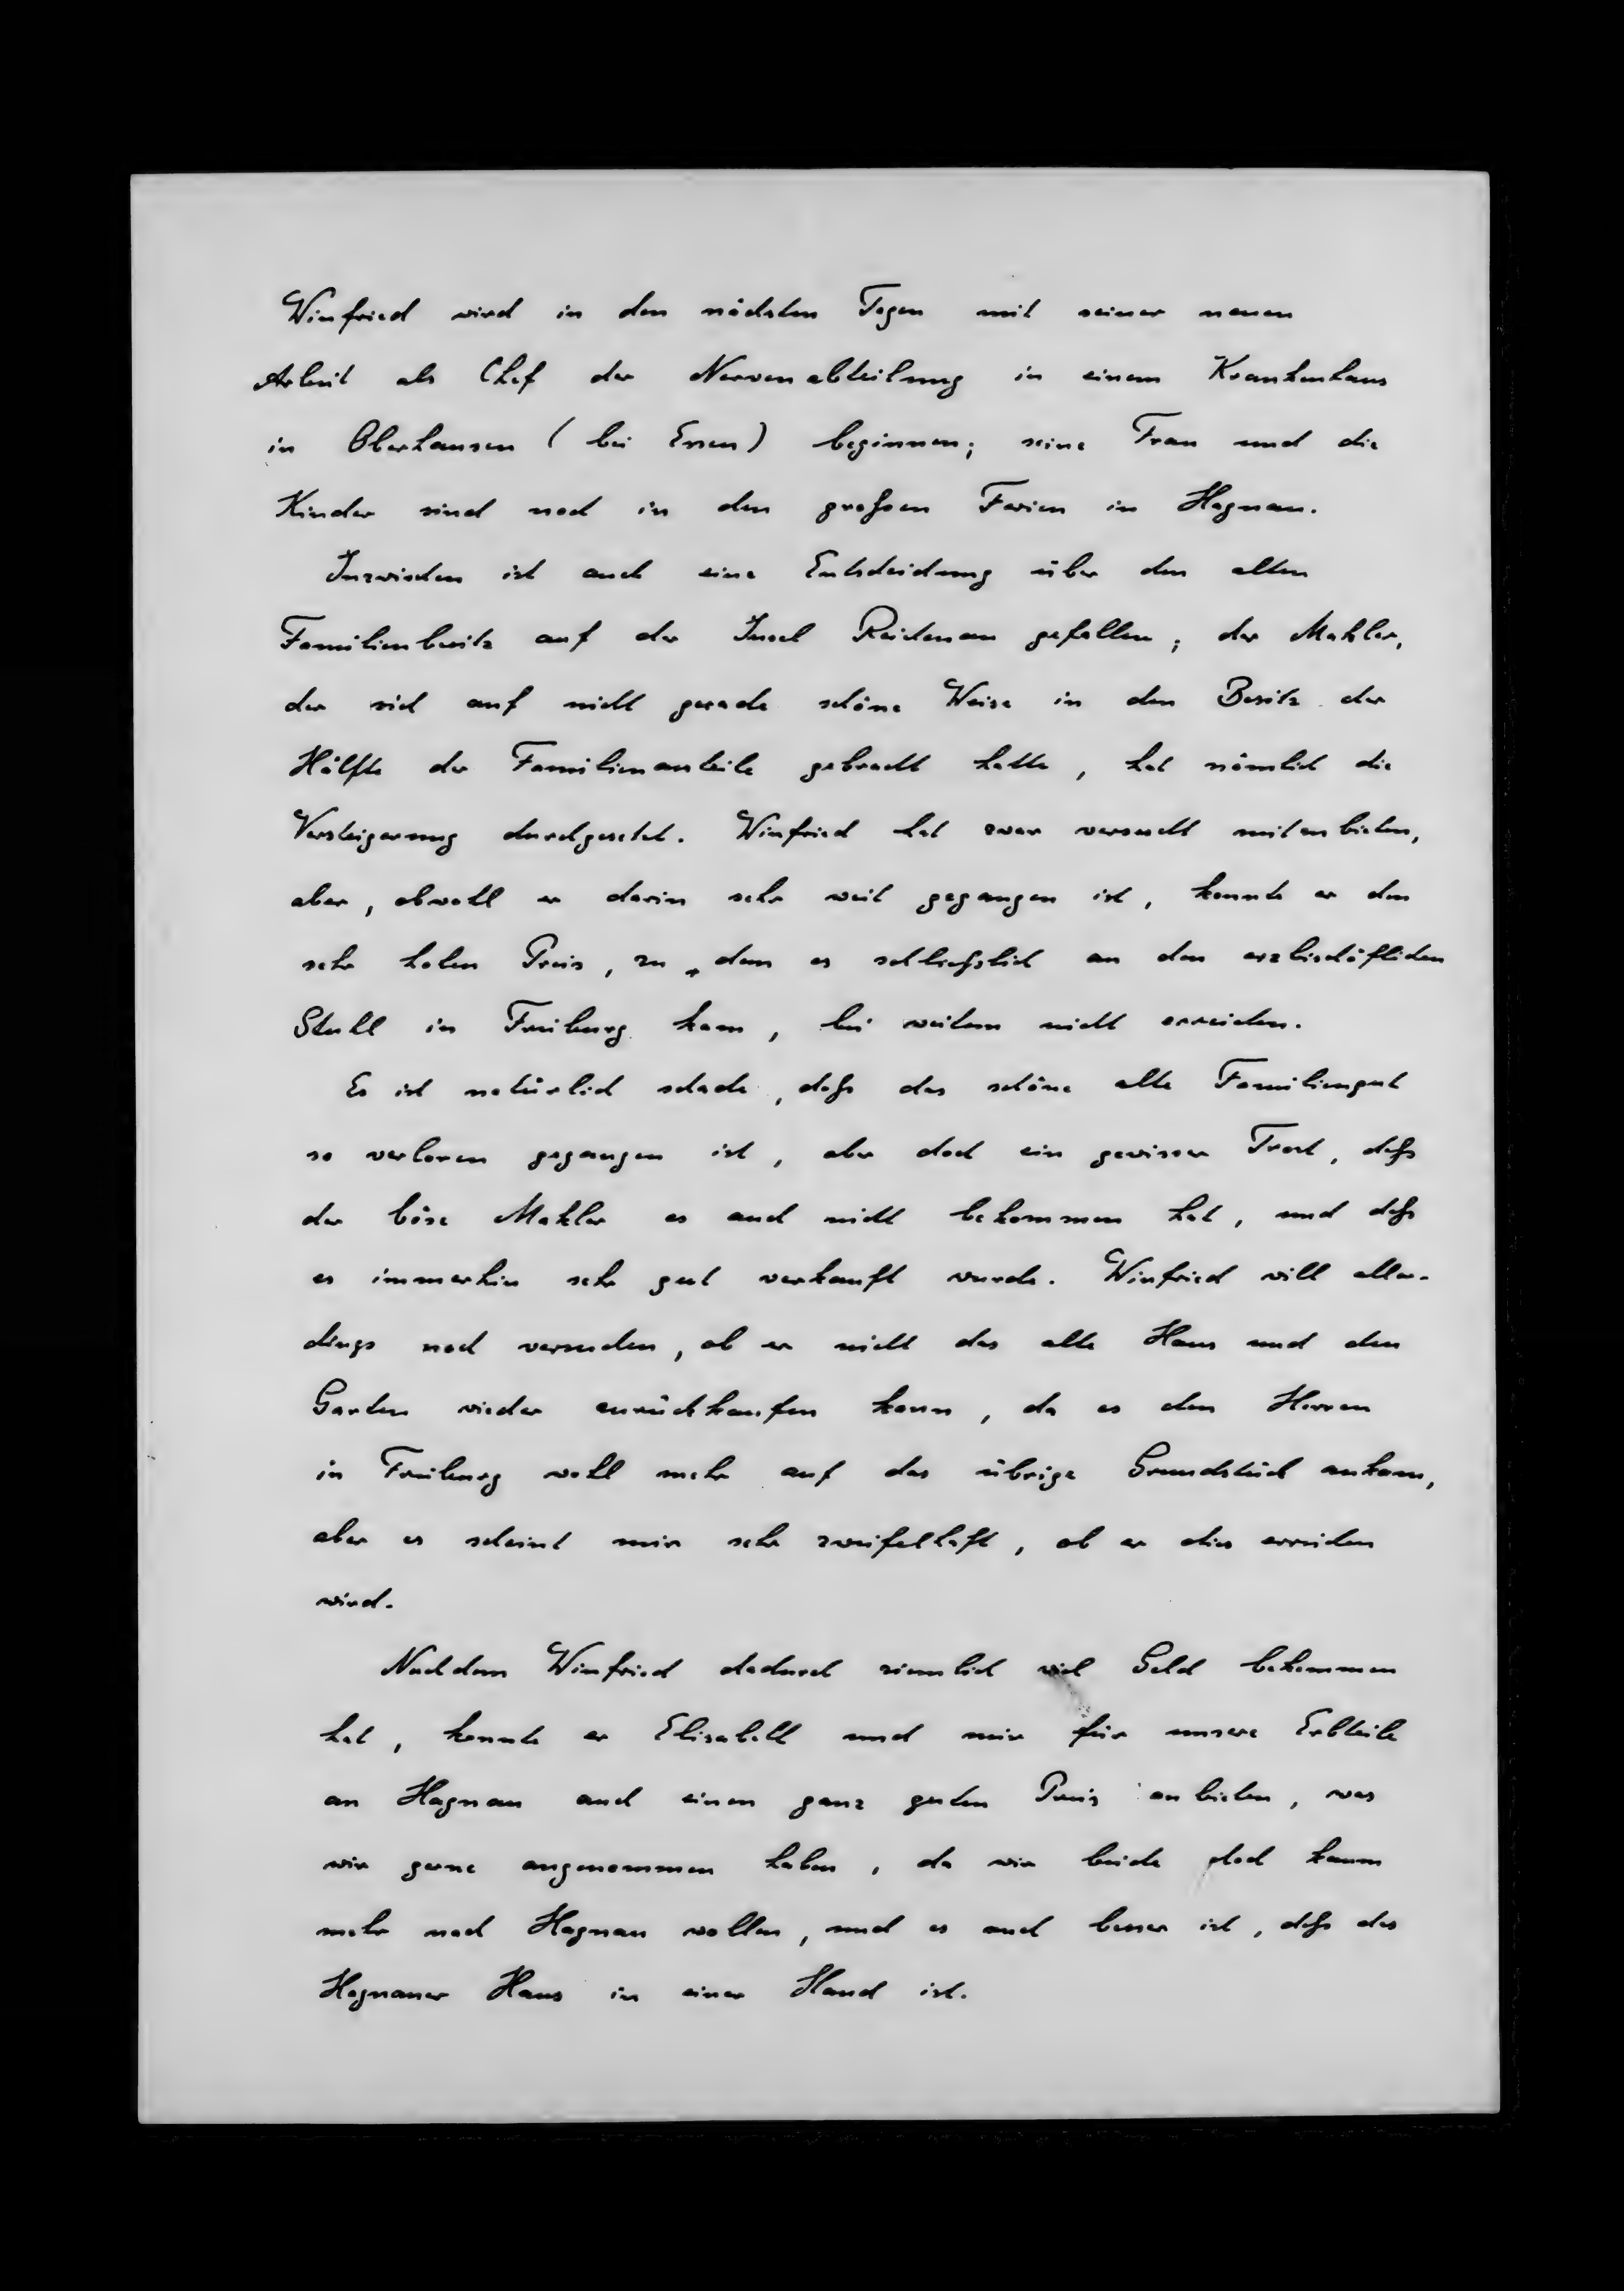 Winfried wird in den nächsten Tagen mit seiner neuen
Arbeit als Chef der Nervenabteilung in einem Krankenhaus
in Oberhausen (bei Essen) beginnen; seine Frau und die
Kinder sind noch in den großen Ferien in Hagnau.
Inzwischen ist auch eine Entscheidung über den alten
Familienbesitz auf der Insel Reichenau gefallen; der Makler,
der sich auf nicht gerade schöne Weise in den Besitz der
Hälfte der Familienanteile gebracht hatte, hat nämlich die
Versteigerung durchgesetzt. Winfried hat zwar versucht mitzubieten,
aber, obwohl er darin sehr weit gegangen ist, konnte er den
sehr hohen Preis, zu dem es schließlich an den erzbischöflichen
Stuhl in Freiburg kam, bei weitem nicht erreichen.
Es ist natürlich schade, daß das schöne alte Familiengut
so verloren gegangen ist, aber doch ein gewisser Trost, daß
der böse Makler es auch nicht bekommen hat, und daß
es immerhin sehr gut verkauft wurde. Winfried will aller-
dings noch versuchen, ob er nicht das alte Haus und den
Garten wieder zurückkaufen kann, da es den Herren
in Freiburg wohl mehr auf das übrige Grundstück ankam,
aber es scheint mir sehr zweifelhaft, ob er dies erreichen
wird.
Nachdem Winfried dadurch ziemlich viel Geld bekommen
hat, konnte er Elisabeth und mir für unsere Erbteile
an Hagnau auch einen ganz guten Preis anbieten, was
wir gerne angenommen haben, da wir beide doch kaum
mehr nach Hagnau wollen, und es auch besser ist, daß das
Hagnauer Haus in einer Hand ist.